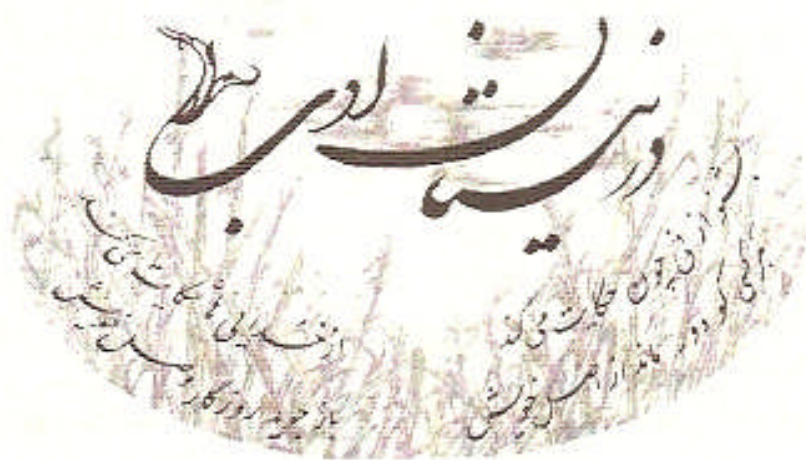 در نیستان ادبی
بشنو از نی چون حکایت می کند
از جدایی ها شکایت می کند
هر کسی کو دور ماند از اصل خویش
باز جوید روزگار وصل خویش